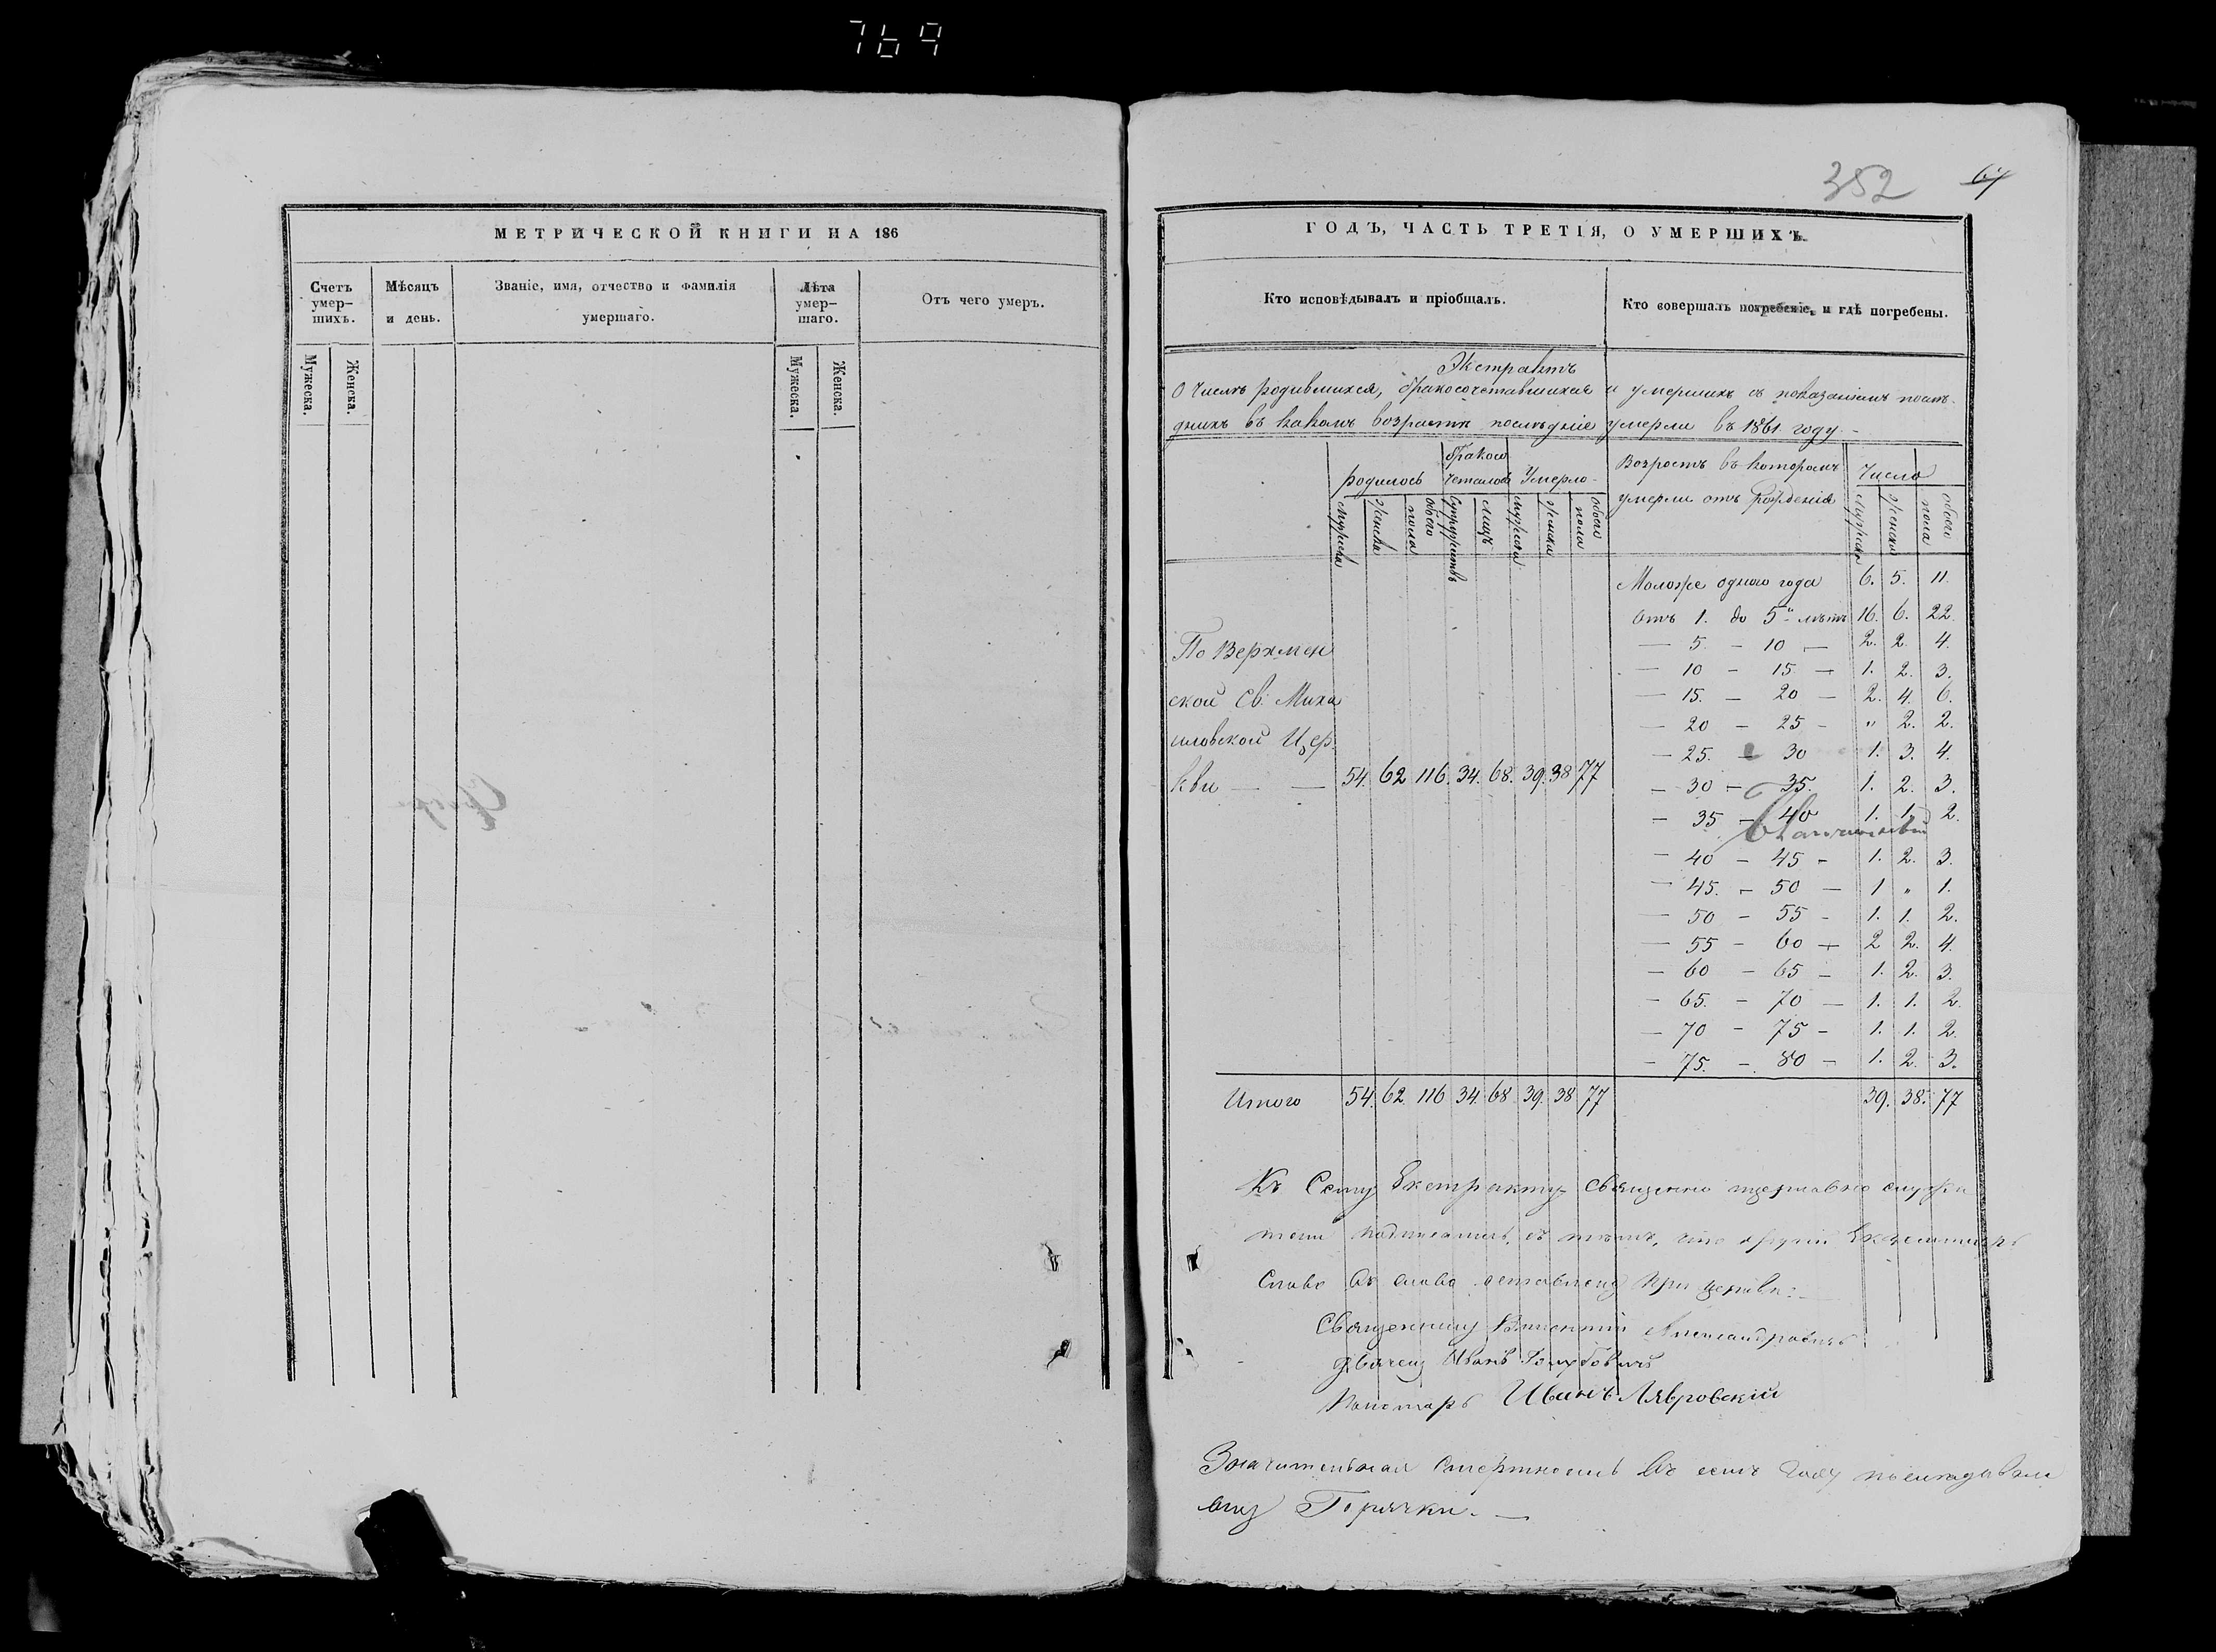 769
МЕТРИЧЕСКОЙ КНИГИ НА 186
Счетъ умер-шихъ.
Мѣсяцъ и день.
Званіе, имя, отчество и фамилія умершаго.
Лѣта умер-шаго.
Отъ чего умеръ.
Мужеска.
Женска.
Мужеска.
Женска.
352
67
ГОДЪ, ЧАСТЬ ТРЕТІЯ, О УМЕРШИХЪ.
Кто исповѣдывалъ и пріобщалъ.
Кто совершалъ погребеніе, и гдѣ погребены.
Экстрактъ
О числѣ родившихся, бракосочетавшихся и умершихъ съ показаніемъ послѣ-
днихъ въ какомъ возрастѣ послѣдніе умерли въ 1861 году.
родилось
бракосо четалось
Умерло
Возрастъ въ которомъ
умерли отъ рожденія
Число
мужеска
женска
обоего пола
супружествъ
лицъ
мужеска
женска
обоего пола
мужеска
женска
обоего пола
Моложе одного года 6. 5. 11.
Отъ 1. до 5. лѣтъ 16. 6. 22.
— 5. — 10 — 2. 2. 4.
— 10 — 15 — 1. 2. 3.
— 15. — 20 — 2. 4. 6.
— 20 — 25 — " 2. 2.
— 25. — 30 1. 3. 4.
— 30 — 35. 1. 2. 3.
— 35 — 40 1. 1. 2.
— 40 — 45 — 1. 2. 3.
— 45. — 50 — 1 " 1.
— 50 — 55 — 1. 1. 2.
— 55 — 60 — 2 2. 4.
— 60 — 65 — 1. 2. 3.
— 65. — 70 — 1. 1. 2.
— 70 — 75 — 1. 1. 2.
— 75. — 80 — 1. 2. 3.
По Верхмен
ской Св. Миха
иловской Цер.
кви — — 54. 62 116. 34. 68. 39. 38 77
Итого 54. 62 116 34. 68. 39. 38 77 39. 38. 77
Къ Сему Екстракту священно церковно служи
тели подписались, съ тѣмъ, что другій Екземпляръ
Слово въ слово оставленъ при церкви:
Священникъ Викентій Александровичъ
Дьячекъ Иванъ Голубовичъ
Пономарь Иванъ Лявровскій
Значительная смертность въ семъ году
Горячки. —